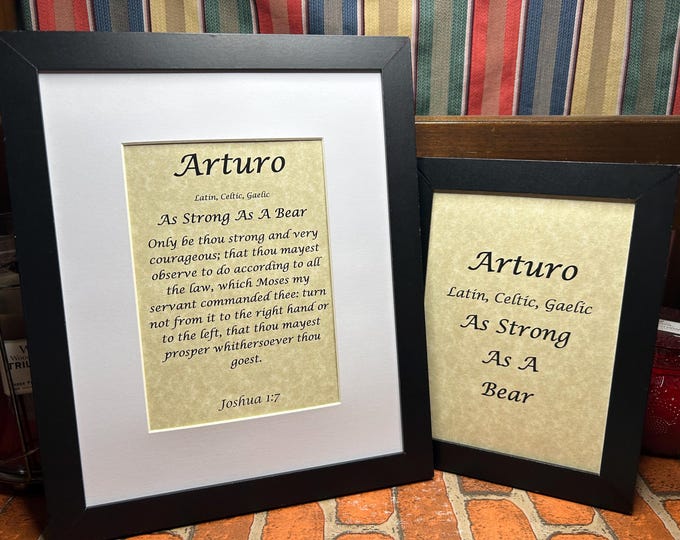 Arturo
Latin, Celtic, Gaelic
As Strong As A Bear
Only be thou strong and very
courageous; that thou mayest
observe to do according to all
the law, which Moses my
servant commanded thee: turn
not from it to the right hand or
to the left, that thou mayest
prosper whithersoever thou
goest.
Joshua 1:7
Arturo
Latin, Celtic, Gaelic
As Strong
As A
Bear